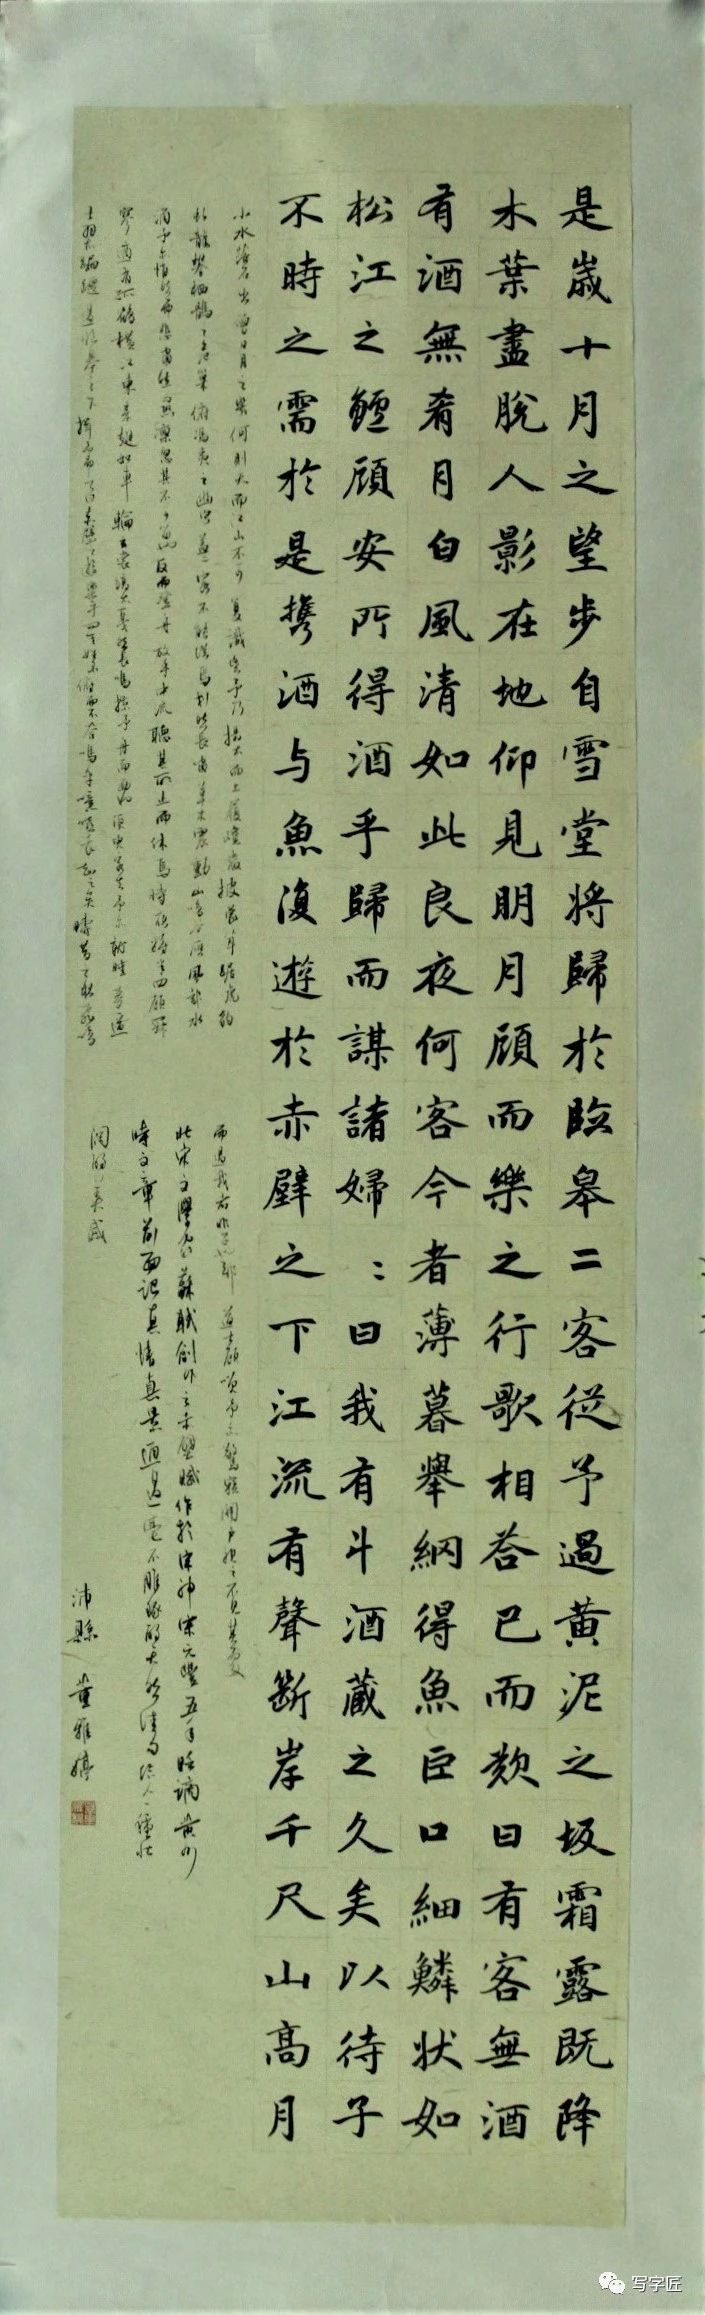 是歲十月之望步自雪堂將歸於臨皋二客從予過黃泥之坂霜露既降
木葉盡脫人影在地仰見明月顧而樂之行歌相荅已而歎曰有客無酒
有酒無肴月白風清如此良夜何客今者薄暮舉網得魚巨口細鱗狀如
松江之鱸顧安所得酒乎歸而謀諸婦〻曰我有斗酒藏之久矣以待子
不時之需於是攜酒与魚復遊於赤壁之下江流有聲斷岸千尺山高月
小水落石出曾日月之幾何而江山不可復識矣予乃攝衣而上履巉巖披蒙茸踞虎豹
虬龍攀栖鶻之危巢俯馮夷之幽宮蓋二客不能從焉劃然長嘯草木震動山鳴谷應風起水
涌予亦悄然而悲肅然而恐凜其不可留也反而登舟放乎中流聽其所止而休焉時夜將半四顧寂
寥適有孤鶴橫江東來翅如車輪玄裳縞衣戛然長鳴掠予舟而西也須臾客去予亦就睡夢道
士羽衣蹁躚過臨皋之下揖予而言曰赤壁之遊樂乎問其姓名俯而不答嗚乎噫嘻我知之矣疇昔之夜飛鳴
而過我者非子也耶道士顧笑予亦驚寤開戶視之不見其處
此宋文學家蘇軾創作之赤壁賦作於宋神宗元豐五年貶謫黃州
時文章前面記真情真景通過一毫不雕琢的天然清句給人一種壯
闊的美感
沛縣 董雅婷
写字匠